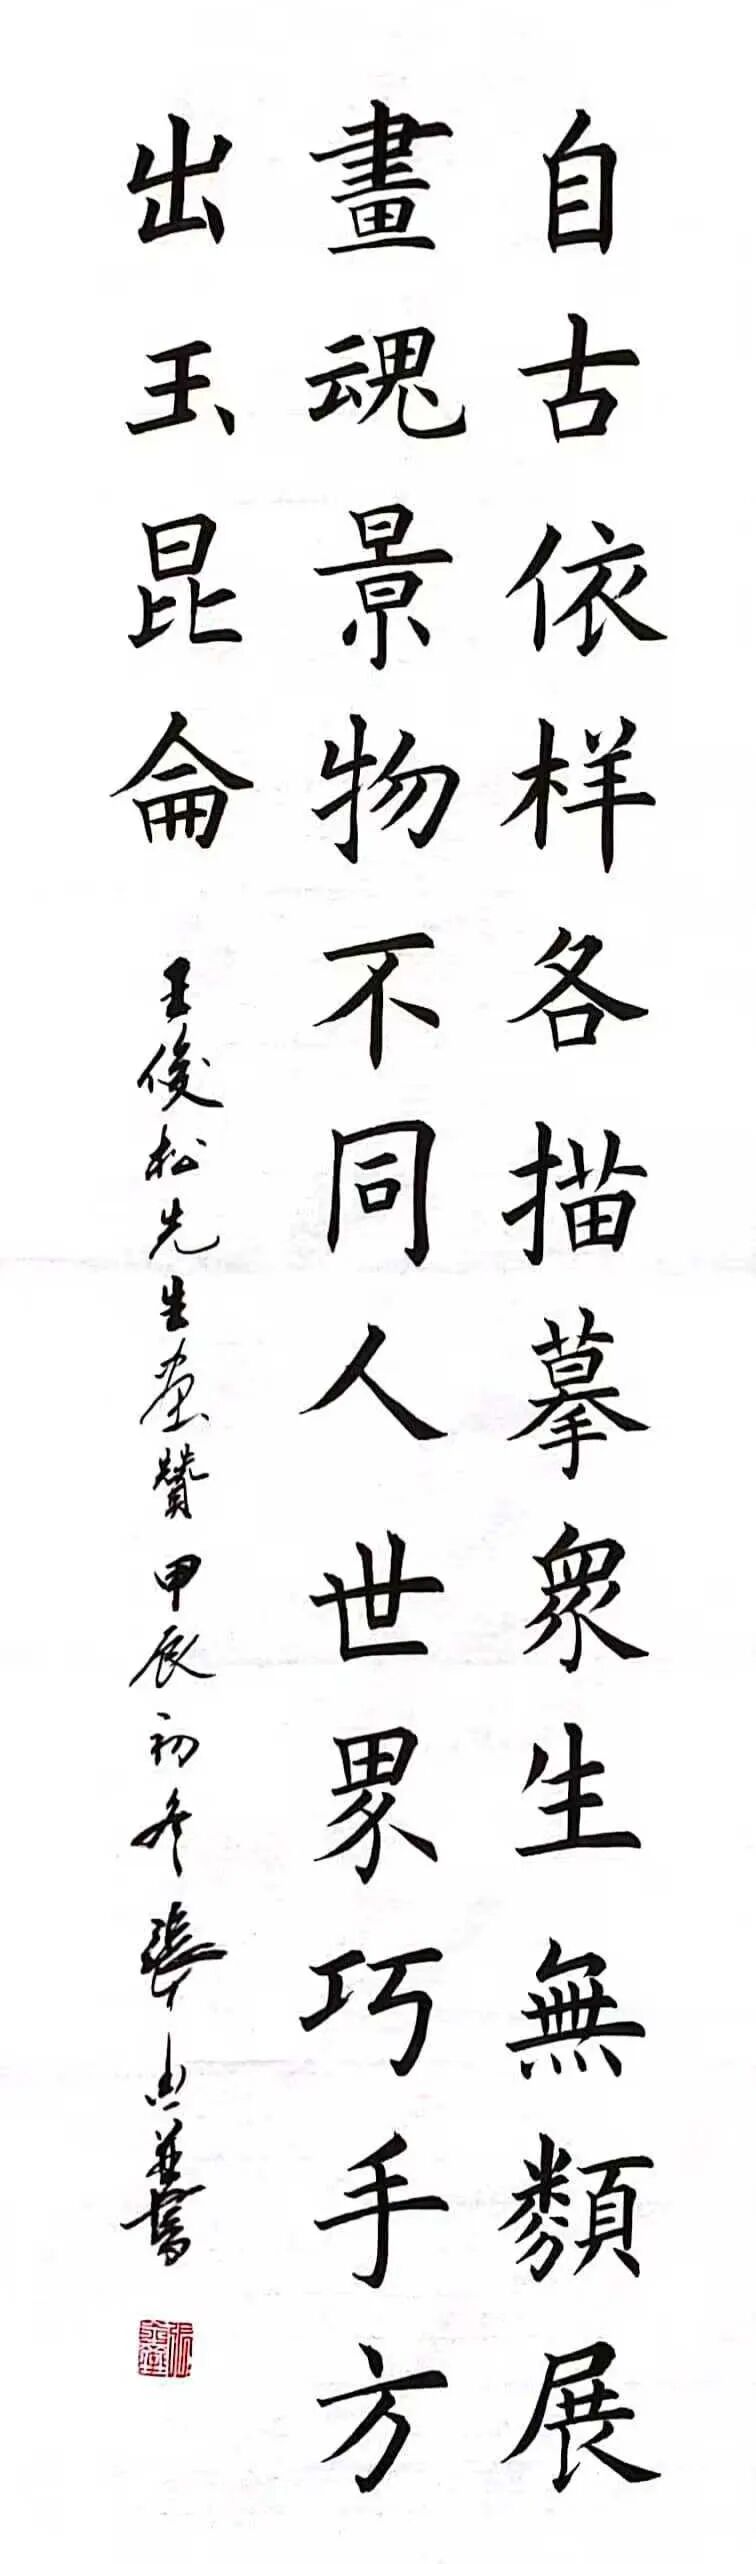 自古依样各描摹衆生無類展
畫魂景物不同人世界巧手方
出玉昆侖
王俊松先生画贊甲辰初冬張並書